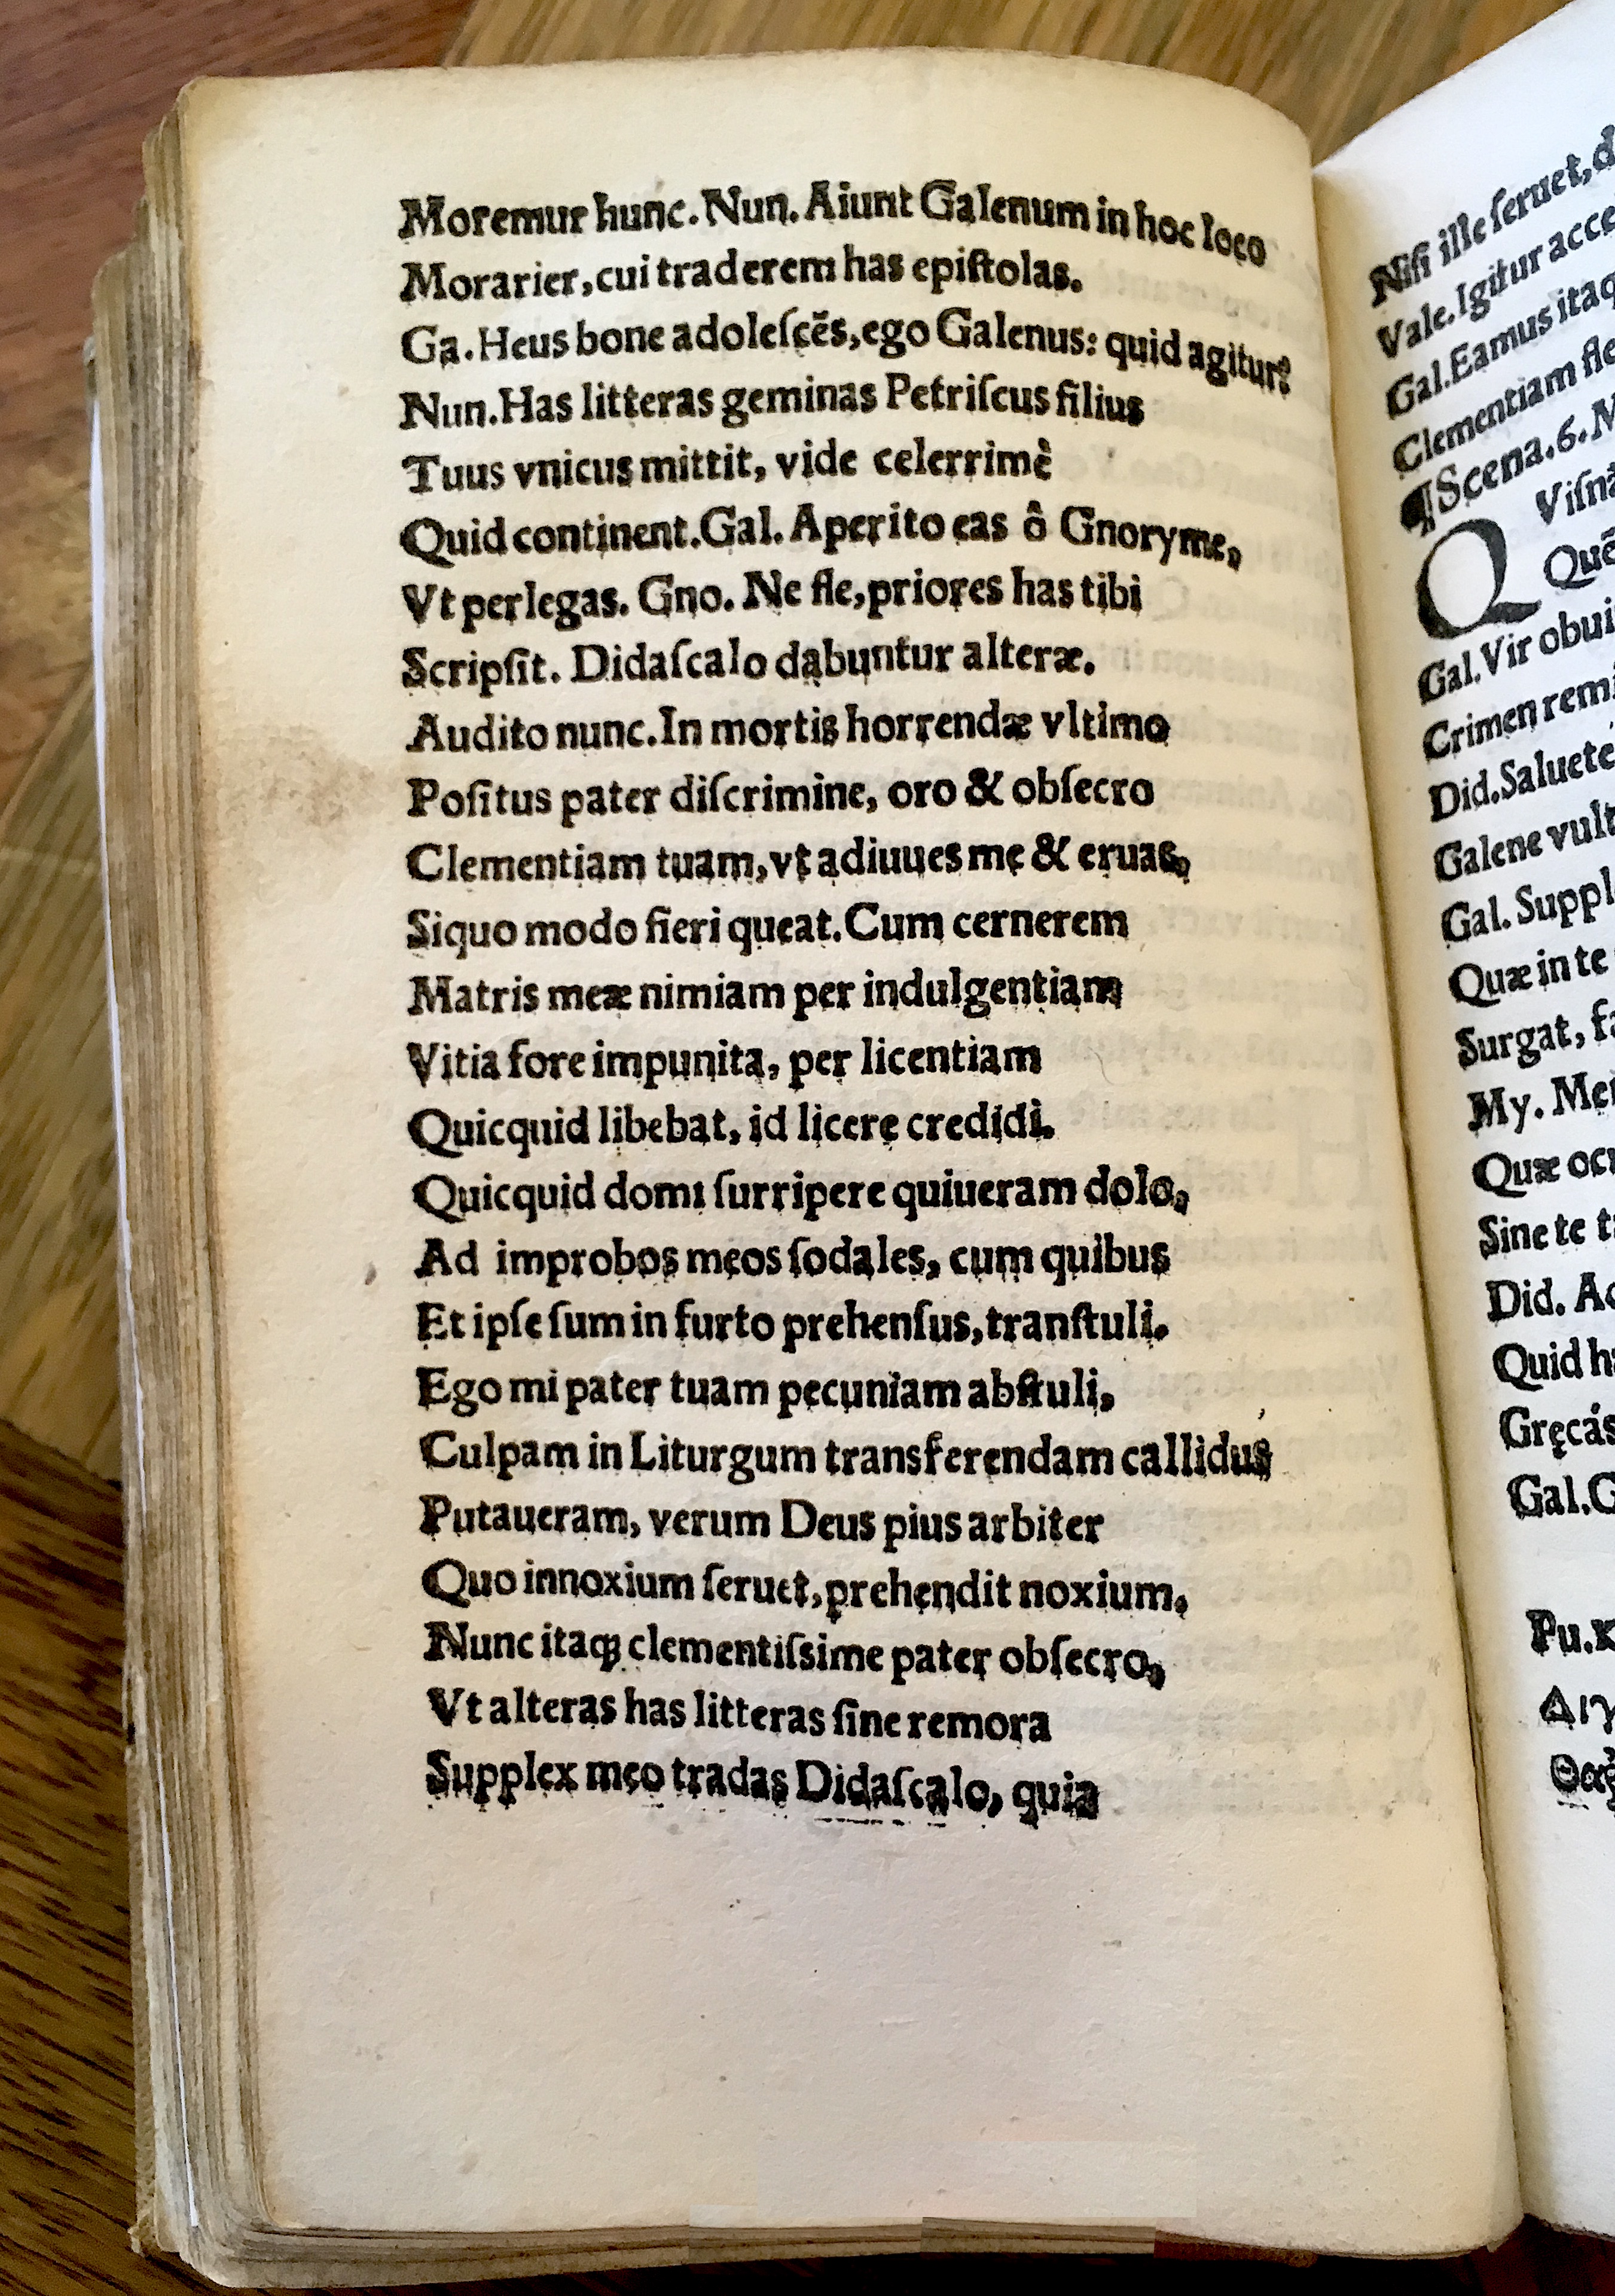 Moremur hunc. Nun. Aiunt Galenum in hoc loco
Morarier, cui traderem has epiſtolas.
Ga. Heus bone adoleſcēs, ego Galenus: quid agitur?
Nun. Has litteras geminas Petriſcus filius
Tuus vnicus mittit, vide celerrimè
Quid continent. Gal. Aperito eas ô Gnoryme,
Vt perlegas. Gno. Ne fle, priores has tibi
Scripſit. Didaſcalo dabuntur alteræ.
Audito nunc. In mortis horrendæ vltimo
Poſitus pater diſcrimine, oro & obſecro
Clementiam tuam, vt adiuues me & eruas,
Siquo modo fieri queat. Cum cernerem
Matris meæ nimiam per indulgentiam
Vitia fore impunita, per licentiam
Quicquid libebat, id licere credidi.
Quicquid domi ſurripere quiueram dolo,
Ad improbos meos ſodales, cum quibus
Et ipſe ſum in furto prehenſus, tranſtuli.
Ego mi pater tuam pecuniam abſtuli,
Culpam in Liturgum transferendam callidus
Putaueram, verum Deus pius arbiter
Quo innoxium ſeruet, prehendit noxium.
Nunc itaqꝫ clementiſsime pater obſecro,
Vt alteras has litteras ſine remora
Supplex meo tradas Didaſcalo, quia
Niſi ille ſeruet,
Vale. Igitur
Gal. Eamus
Clementiam
¶Scena. 6.
Q
Gal. Vir
Crimen
Did. Saluete
Galene
Gal.
Quæ in te
Surgat,
My.
Quæ
Sine te
Did.
Quid
Gręcás
Gal.
Pu.